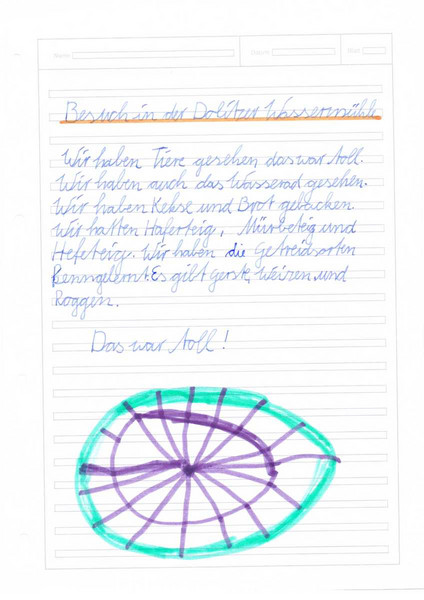 Besuch in der Dölitzer Wassermühle
Wir haben Tiere gesehen das war toll.
Wir haben auch das Wasserad gesehen.
Wir haben Kekse und Brot gebacken
Wir hatten Haferteig, Mürbeteig und
Hefeteig. Wir haben die Getreidsorten
kenngelernt. Es gibt Gerste, Weizen und
Roggen.
Das war toll!